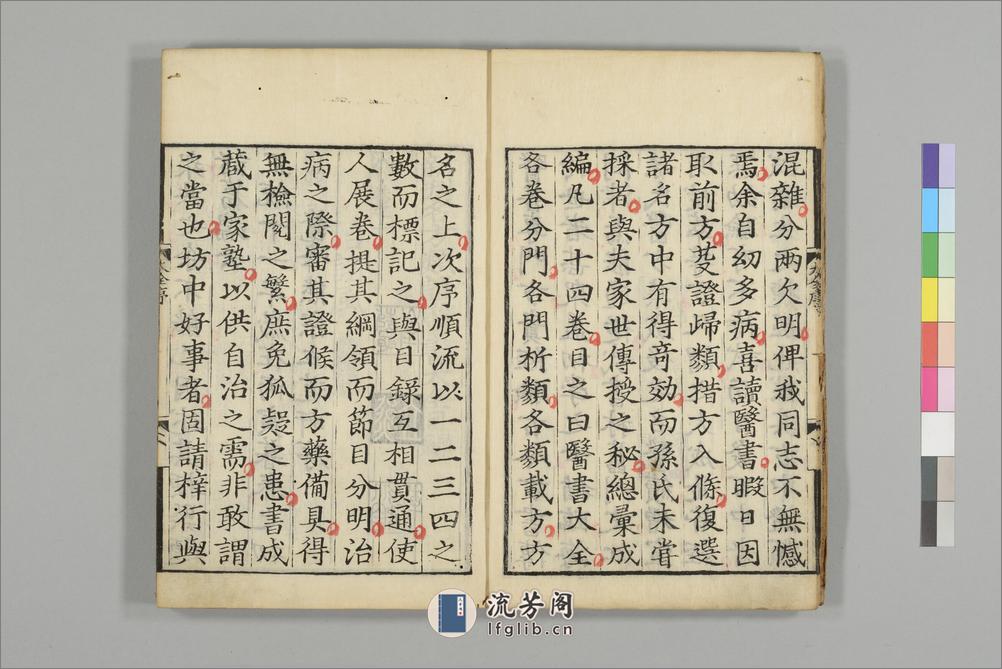 混雜分兩欠明俾我同志不無憾
焉余自幼多病喜讀醫書暇日因
取前方芟證歸類措方入條復選
諸名方中有得竒効而孫氏未甞
採者與夫家世傳授之秘總彙成
編凡二十四卷目之曰醫書大全
各卷分門各門析類各類載方方
名之上次序順流以一二三四之
數而標記之與目錄互相貫通使
人展卷提其綱領而節目分明治
病之際審其證候而方藥備具得
無檢閱之繁庶免狐疑之患書成
藏于家塾以供自治之需非敢謂
之當也坊中好事者固請梓行與
流芳阁
lfglib.cn